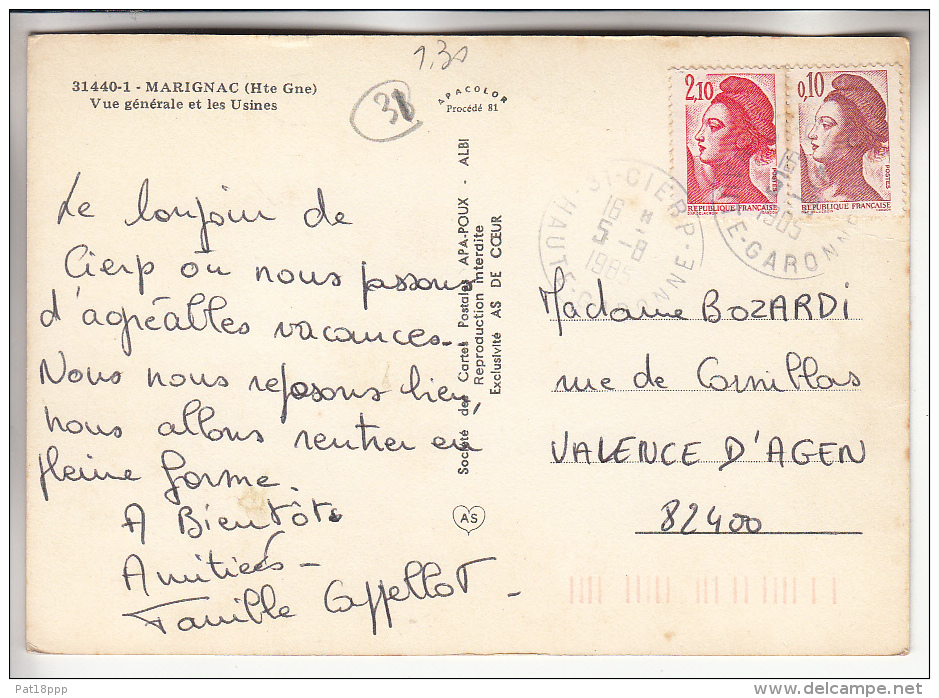 1,30
31440-1 - MARIGNAC (Hte Gne)
Vue générale et les Usines
31
APACOLOR
Procédé 81
2,10
POSTES
REPUBLIQUE FRANÇAISE
0,10
POSTES
REPUBLIQUE FRANÇAISE
31-CIERP
16 H
5-8
1985
HAUTE-GARONNE
1985
TE-GARONNE
Le bonjour de
Cierp où nous passons
d'agréables vacances..
Nous nous reposons bien,
nous allons rentrer en
pleine forme.
A Bientôt
Amitiés -
Famille Cappellot -
Société des Cartes Postales APA-POUX - ALBI
Reproduction interdite
Exclusivité AS DE CŒUR
AS
Madame BOZARDI
rue de Cornillas
VALENCE D'AGEN
82400
Pat18ppp
www.delcampe.net